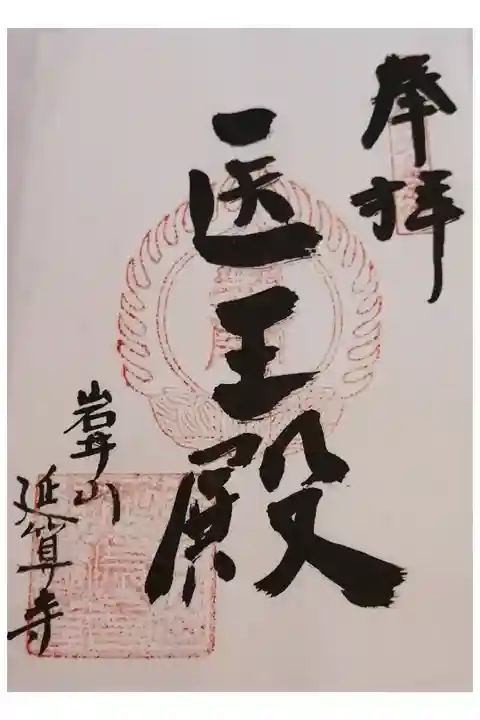 奉拝
医王殿
岩井山
延算寺